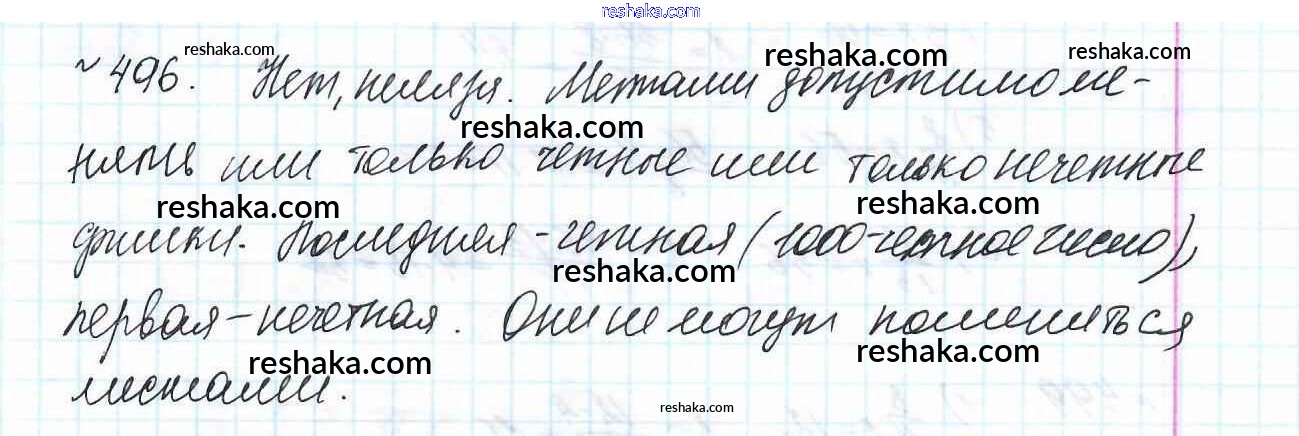 reshaka.com
reshaka.com reshaka.com reshaka.com
~ 496. Нет, нельзя. Местами допустимо ме-
reshaka.com
нять или только четные или только нечетные
reshaka.com reshaka.com
фишки. Последняя - четная (1000-четное число),
reshaka.com
первая - нечетная. Они не могут поменяться
reshaka.com reshaka.com
местами.
reshaka.com